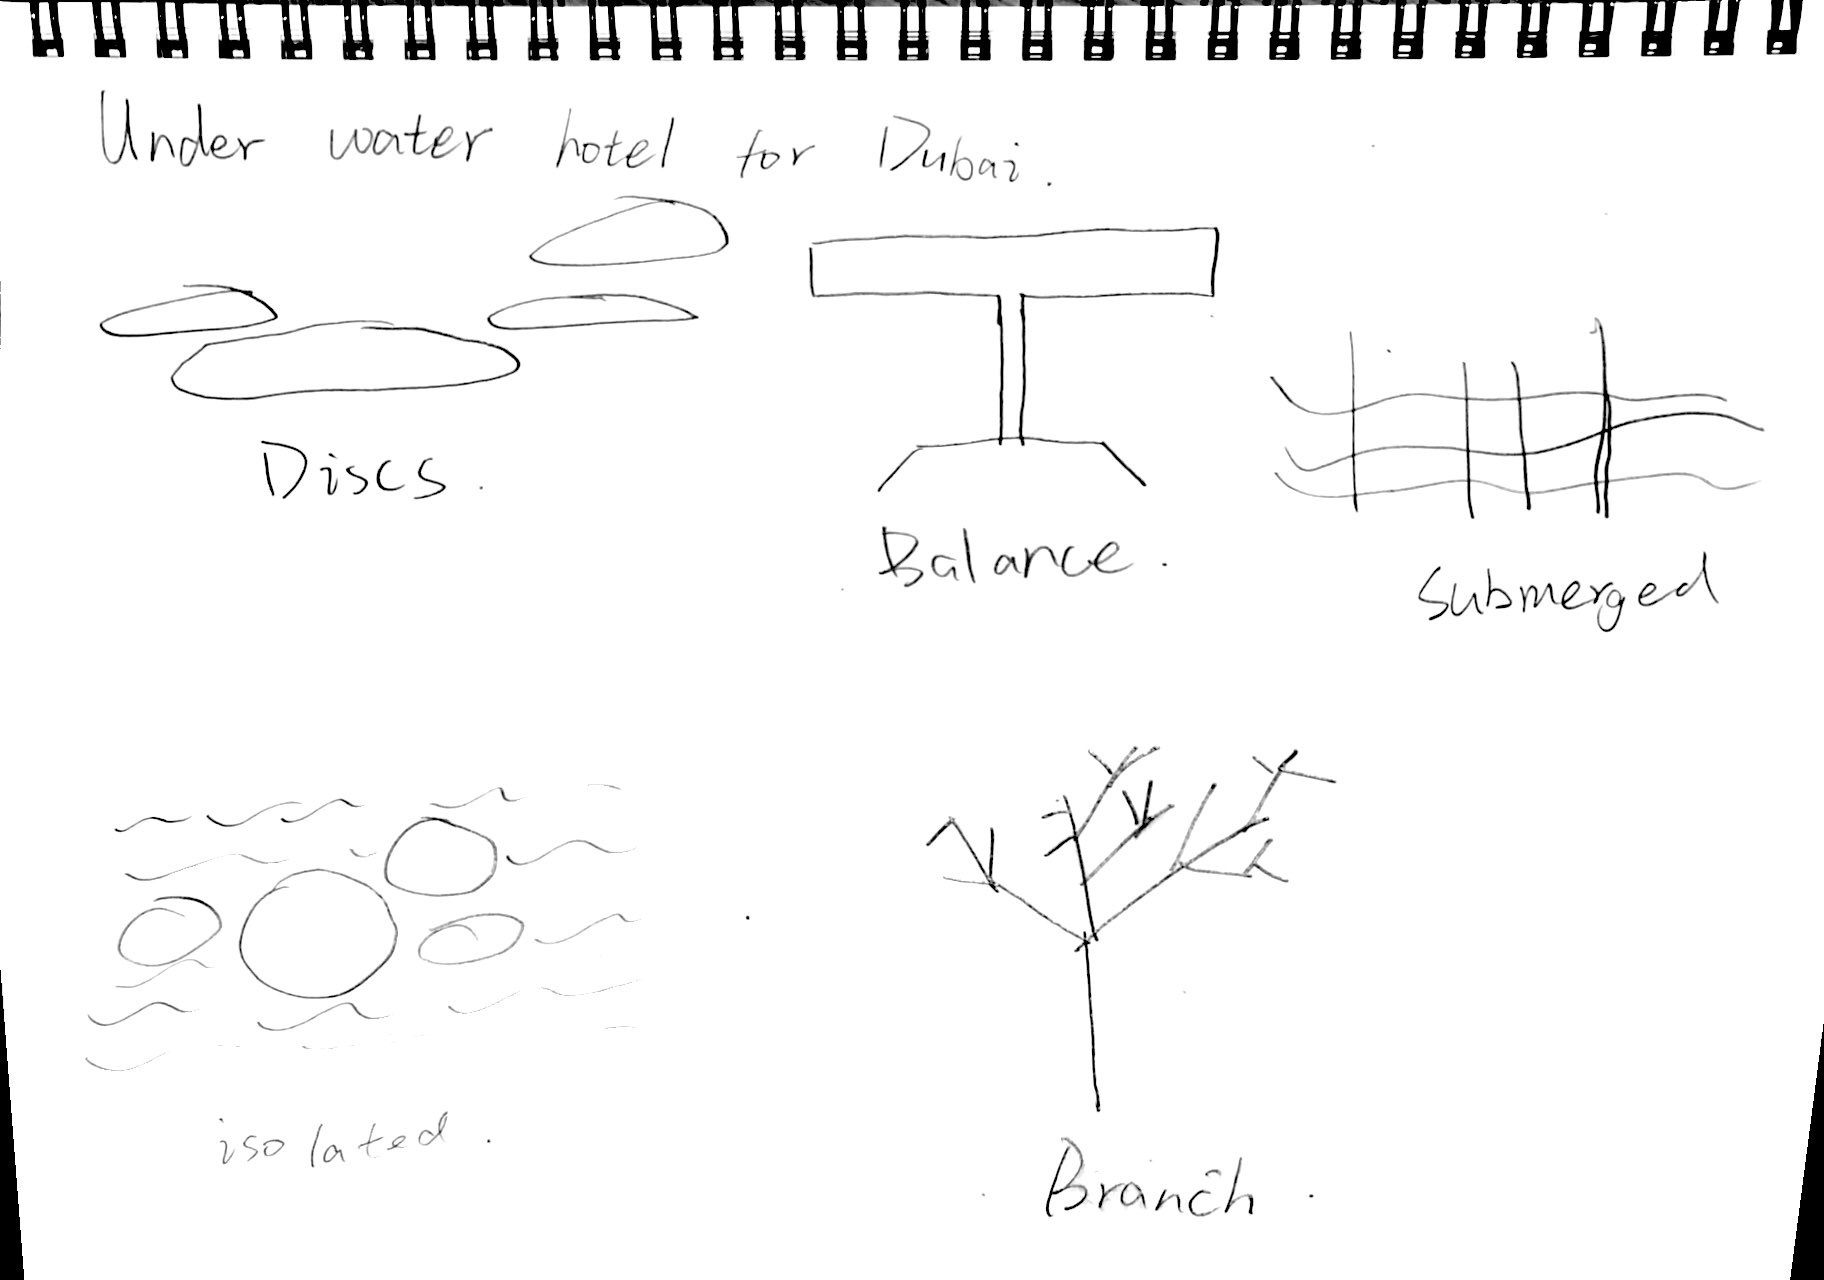 Under water hotel for Dubai.
Discs.
Balance.
Submerged
isolated.
Branch.